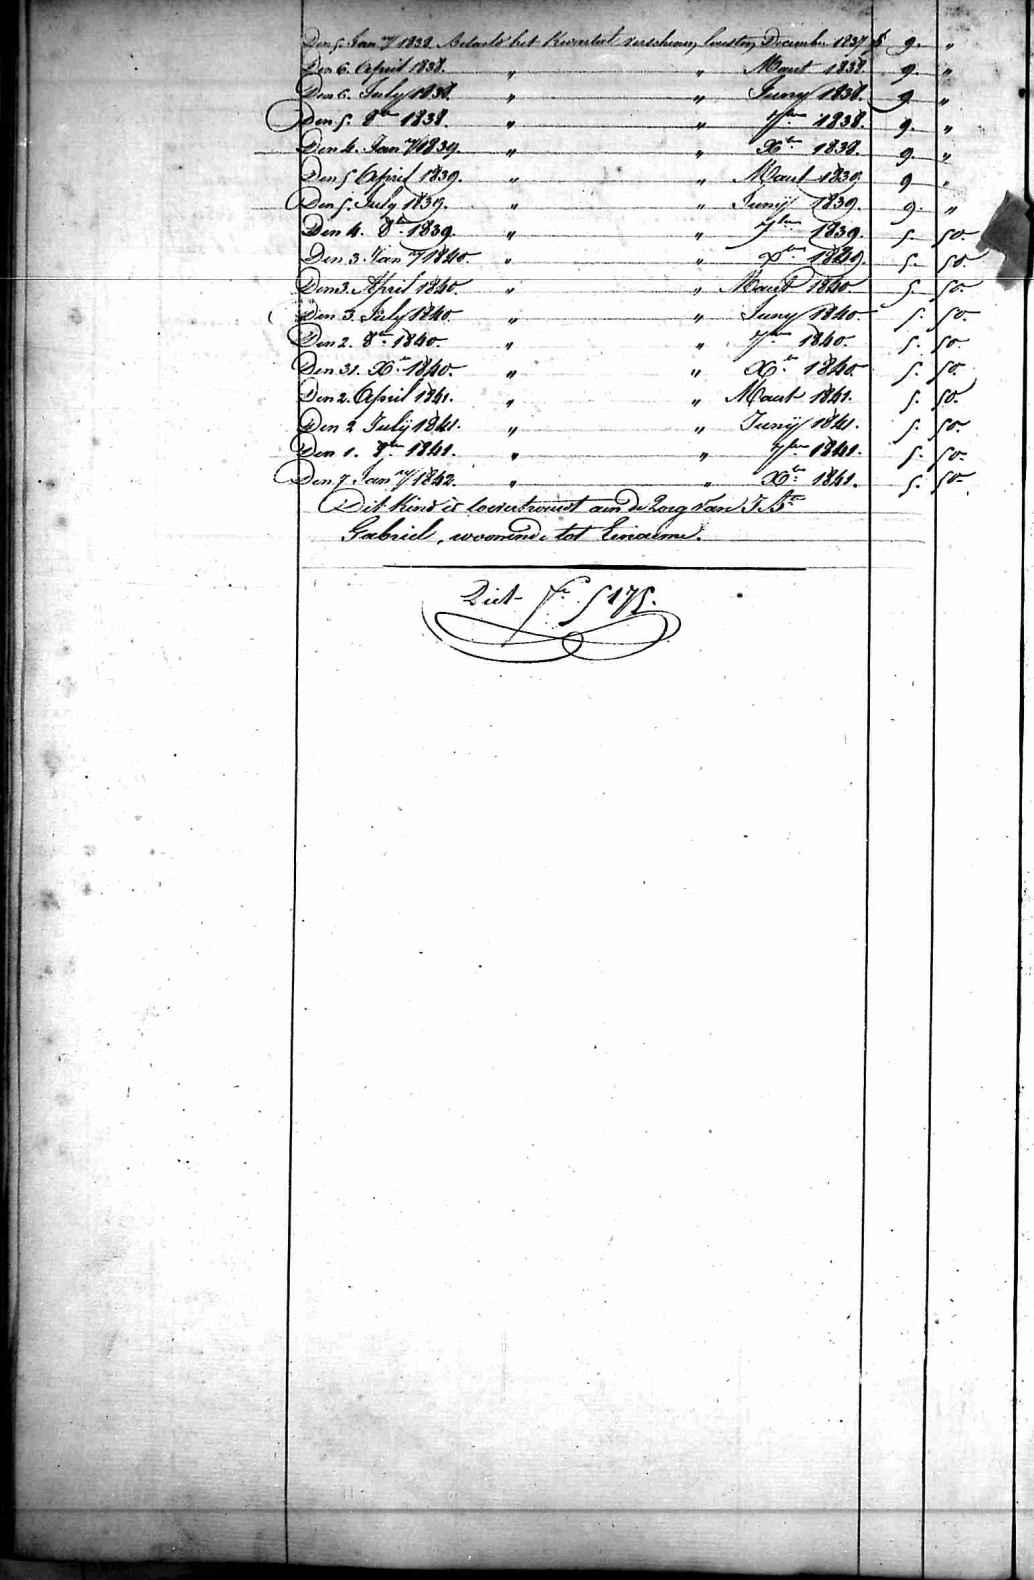 Den 5 Jan.ry 1838. Betaeld het Kwartael verschenen laesten December 1837 f 9. "
Den 6. April 1838. " " Maert 1838. 9. "
Den 6. July 1838. " " Juny 1838. 9. "
Den 5. 8bre 1838 " " 7bre 1838. 9. "
Den 4. Jan.ry 1839. " " Xbre 1838. 9. "
Den 5 April 1839. " " Maert 1839 9 "
Den 5. July 1839. " " Junij 1839. 9. "
Den 4. 8bre 1839. " " 7bre 1839. 5. 50.
Den 3. Jan.ry 1840. " " Xbre 1839. 5. 50.
Den 3. April 1840. " " Maert 1840 5. 50
Den 3. July 1840. " " Juny 1840. 5. 50.
Den 2. 8bre 1840. " " 7bre 1840. 5. 50
Den 31. Xbre 1840. " " Xbre 1840 5. 50.
Den 2. April 1841. " " Maert 1841. 5. 50.
Den 2 Julij 1841. " " Junij 1841. 5. 50
Den 1. 8bre 1841. " " 7bre 1841. 5. 50.
Den 7 Jan.ry 1842. " " Xbre 1841. 5. 50.
Dit Kind is toevertrouwt aen de Zorg van J. Bte
Gabriel, woonende tot Einaeme.
Ziet 175.